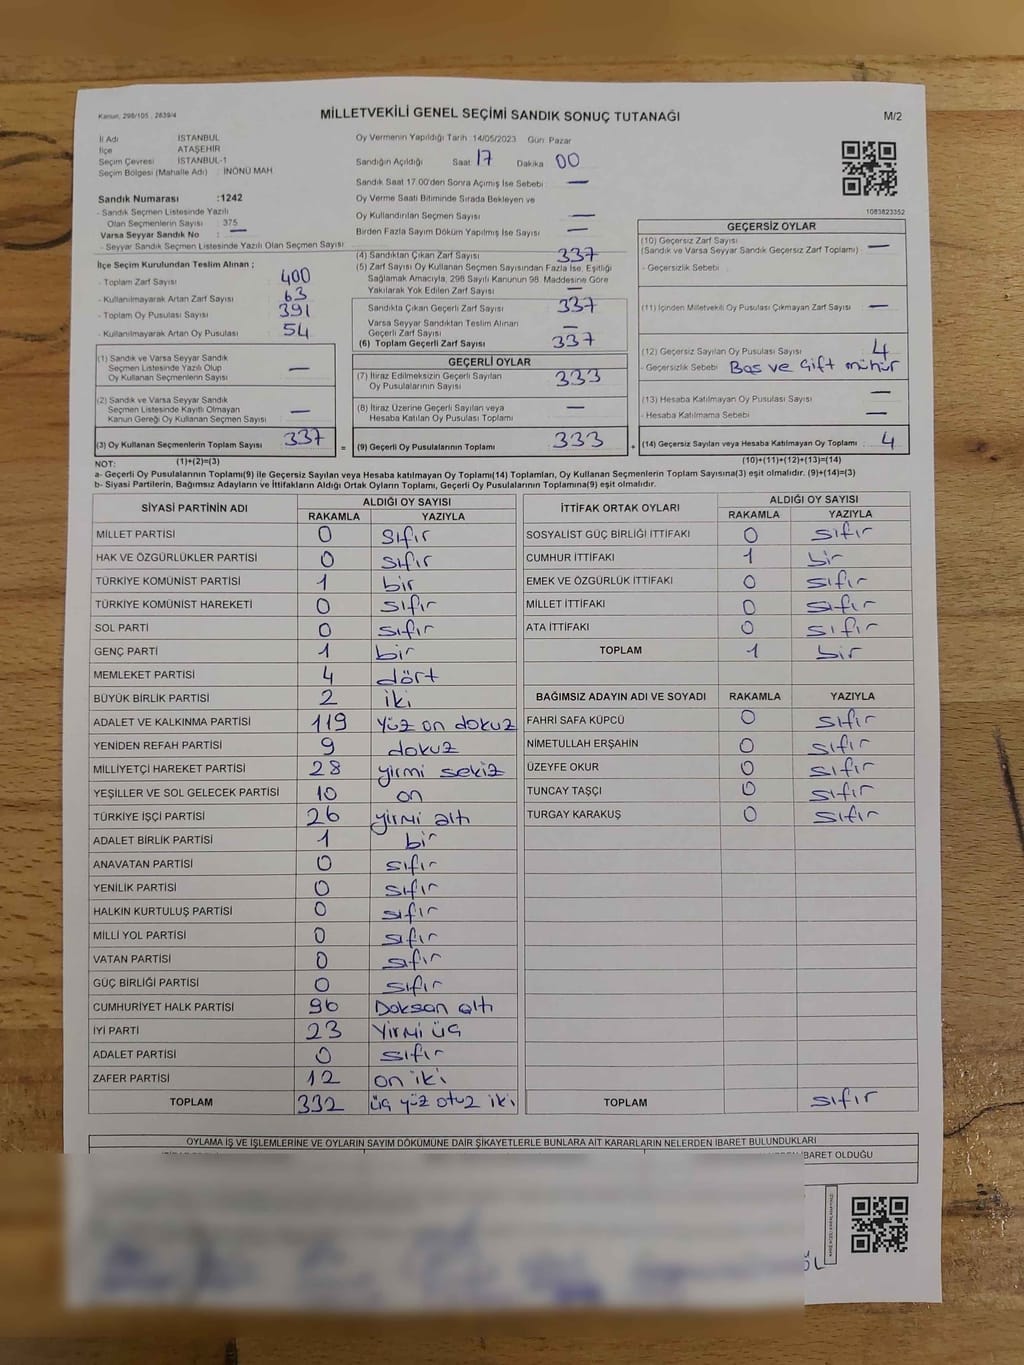 Kanun, 298/105 , 2839/4
MİLLETVEKİLİ GENEL SEÇİMİ SANDIK SONUÇ TUTANAĞI
M/2
İl Adı : İSTANBUL
İlçe : ATAŞEHİR
Seçim Çevresi : İSTANBUL-1
Seçim Bölgesi (Mahalle Adı) : İNÖNÜ MAH
Sandık Numarası :1242
- Sandık Seçmen Listesinde Yazılı
Olan Seçmenlerin Sayısı : 375
Varsa Seyyar Sandık No : —
- Seyyar Sandık Seçmen Listesinde Yazılı Olan Seçmen Sayısı :
Oy Vermenin Yapıldığı Tarih :14/05/2023 Gün: Pazar
Sandığın Açıldığı Saat : 17 Dakika : 00
Sandık Saat 17:00'den Sonra Açımış İse Sebebi : —
Oy Verme Saati Bitiminde Sırada Bekleyen ve
Oy Kullandırılan Seçmen Sayısı : —
Birden Fazla Sayım Döküm Yapılmış İse Sayısı : —
1083823352
İlçe Seçim Kurulundan Teslim Alınan ;
- Toplam Zarf Sayısı : 400
- Kullanılmayarak Artan Zarf Sayısı : 63
- Toplam Oy Pusulası Sayısı : 391
- Kullanılmayarak Artan Oy Pusulası : 54
(1) Sandık ve Varsa Seyyar Sandık
Seçmen Listesinde Yazılı Olup
Oy Kullanan Seçmenlerin Sayısı : —
(2) Sandık ve Varsa Seyyar Sandık
Seçmen Listesinde Kayıtlı Olmayan
Kanun Gereği Oy Kullanan Seçmen Sayısı : —
(3) Oy Kullanan Seçmenlerin Toplam Sayısı : 337
(1)+(2)=(3)
(4) Sandıktan Çıkan Zarf Sayısı : 337
(5) Zarf Sayısı Oy Kullanan Seçmen Sayısından Fazla İse, Eşitliği
Sağlamak Amacıyla, 298 Sayılı Kanunun 98. Maddesine Göre
Yakılarak Yok Edilen Zarf Sayısı : —
Sandıkta Çıkan Geçerli Zarf Sayısı : 337
Varsa Seyyar Sandıktan Teslim Alınan
Geçerli Zarf Sayısı : —
(6) Toplam Geçerli Zarf Sayısı : 337
GEÇERLİ OYLAR
(7) İtiraz Edilmeksizin Geçerli Sayılan
Oy Pusulalarının Sayısı : 333
(8) İtiraz Üzerine Geçerli Sayılan veya
Hesaba Katılan Oy Pusulası Toplamı : —
= (9) Geçerli Oy Pusulalarının Toplamı : 333 +
GEÇERSİZ OYLAR
(10) Geçersiz Zarf Sayısı
(Sandık ve Varsa Seyyar Sandık Geçersiz Zarf Toplamı) : —
- Geçersizlik Sebebi :
(11) İçinden Milletvekili Oy Pusulası Çıkmayan Zarf Sayısı : —
(12) Geçersiz Sayılan Oy Pusulası Sayısı : 4
- Geçersizlik Sebebi : Boş ve Çift mühür
(13) Hesaba Katılmayan Oy Pusulası Sayısı : —
- Hesaba Katılmama Sebebi : —
(14) Geçersiz Sayılan veya Hesaba Katılmayan Oy Toplamı : 4
(10)+(11)+(12)+(13)=(14)
NOT:
a- Geçerli Oy Pusulalarının Toplamı(9) ile Geçersiz Sayılan veya Hesaba katılmayan Oy Toplamı(14) Toplamları, Oy Kullanan Seçmenlerin Toplam Sayısına(3) eşit olmalıdır. (9)+(14)=(3)
b- Siyasi Partilerin, Bağımsız Adayların ve İttifakların Aldığı Ortak Oyların Toplamı, Geçerli Oy Pusulalarının Toplamına(9) eşit olmalıdır.
SİYASİ PARTİNİN ADI ALDIĞI OY SAYISI
RAKAMLA YAZIYLA
MİLLET PARTİSİ 0 sıfır
HAK VE ÖZGÜRLÜKLER PARTİSİ 0 sıfır
TÜRKİYE KOMÜNİST PARTİSİ 1 bir
TÜRKİYE KOMÜNİST HAREKETİ 0 sıfır
SOL PARTİ 0 sıfır
GENÇ PARTİ 1 bir
MEMLEKET PARTİSİ 4 dört
BÜYÜK BİRLİK PARTİSİ 2 iki
ADALET VE KALKINMA PARTİSİ 119 yüz on dokuz
YENİDEN REFAH PARTİSİ 9 dokuz
MİLLİYETÇİ HAREKET PARTİSİ 28 yirmi sekiz
YEŞİLLER VE SOL GELECEK PARTİSİ 10 on
TÜRKİYE İŞÇİ PARTİSİ 26 yirmi altı
ADALET BİRLİK PARTİSİ 1 bir
ANAVATAN PARTİSİ 0 sıfır
YENİLİK PARTİSİ 0 sıfır
HALKIN KURTULUŞ PARTİSİ 0 sıfır
MİLLİ YOL PARTİSİ 0 sıfır
VATAN PARTİSİ 0 sıfır
GÜÇ BİRLİĞİ PARTİSİ 0 sıfır
CUMHURİYET HALK PARTİSİ 96 Doksan altı
İYİ PARTİ 23 Yirmi üç
ADALET PARTİSİ 0 sıfır
ZAFER PARTİSİ 12 on iki
TOPLAM 332 üç yüz otuz iki
İTTİFAK ORTAK OYLARI ALDIĞI OY SAYISI
RAKAMLA YAZIYLA
SOSYALİST GÜÇ BİRLİĞİ İTTİFAKI 0 sıfır
CUMHUR İTTİFAKI 1 bir
EMEK VE ÖZGÜRLÜK İTTİFAKI 0 sıfır
MİLLET İTTİFAKI 0 sıfır
ATA İTTİFAKI 0 sıfır
TOPLAM 1 bir
BAĞIMSIZ ADAYIN ADI VE SOYADI RAKAMLA YAZIYLA
FAHRİ SAFA KÜPCÜ 0 sıfır
NİMETULLAH ERŞAHİN 0 sıfır
ÜZEYFE OKUR 0 sıfır
TUNCAY TAŞÇI 0 sıfır
TURGAY KARAKUŞ 0 sıfır
TOPLAM sıfır
OYLAMA İŞ VE İŞLEMLERİNE VE OYLARIN SAYIM DÖKÜMÜNE DAİR ŞİKAYETLERLE BUNLARA AİT KARARLARIN NELERDEN İBARET BULUNDUKLARI
İBARET OLDUĞU